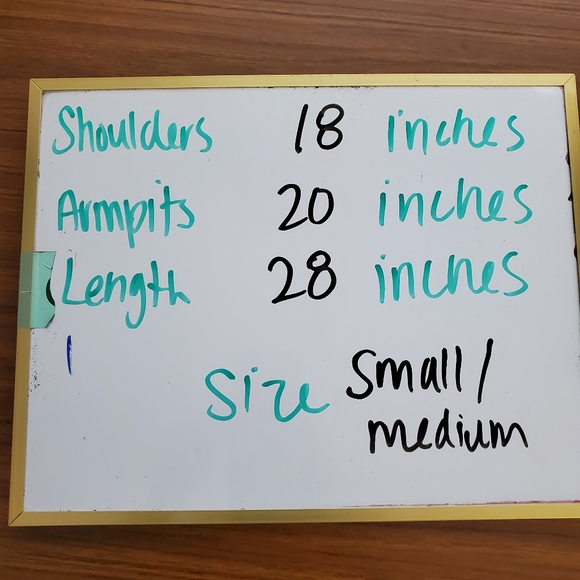 Shoulders 18 inches
Armpits 20 inches
Length 28 inches
Size Small/
medium